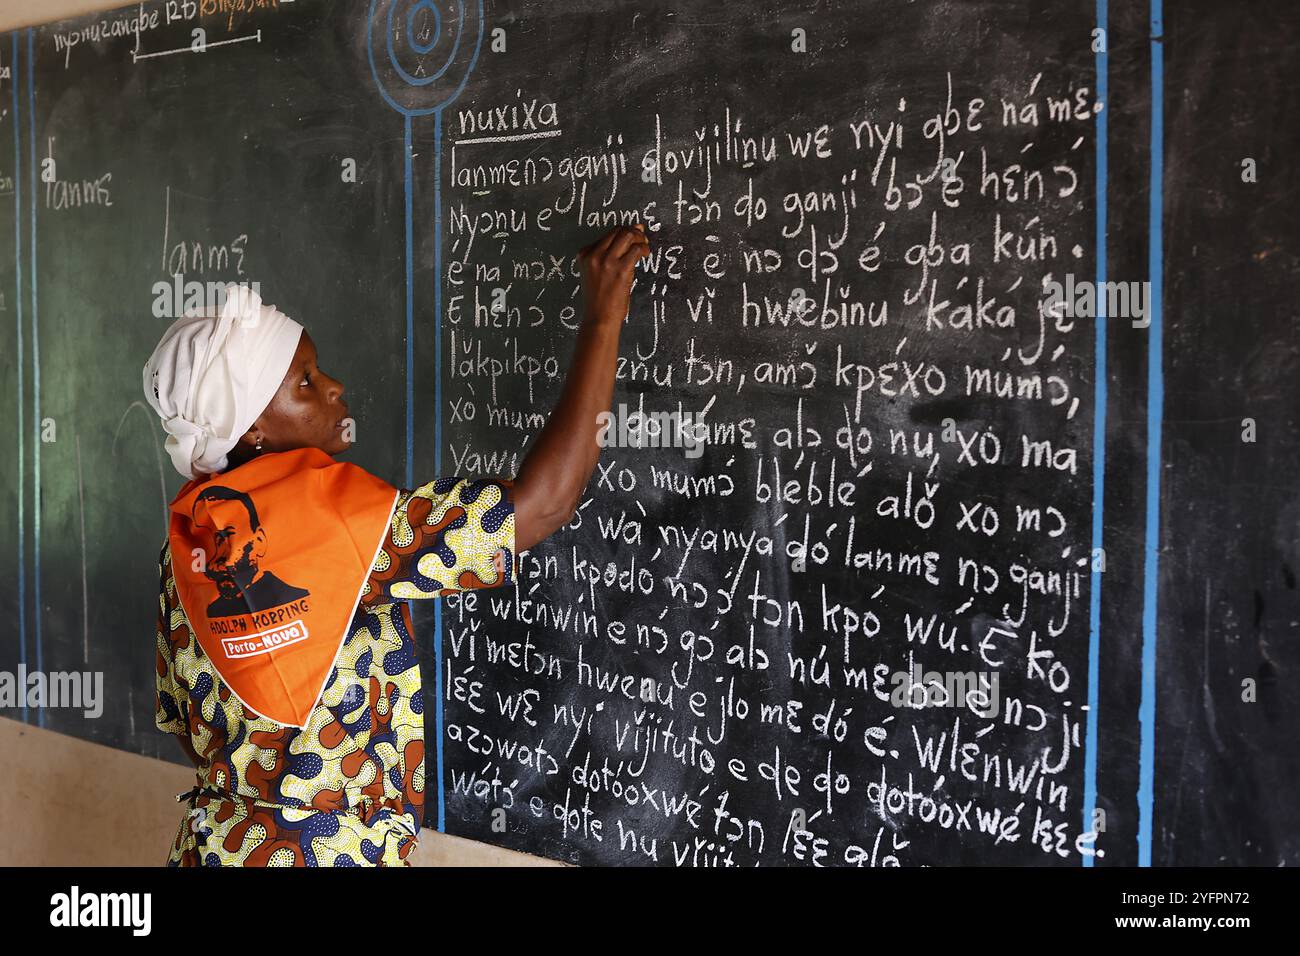 nyɔnuzangbe 12tɔ
lanmɛ
lanmɛ
nuxixa
lanmɛnɔ ganji dovĭjilinu wɛ nyi gbɛ ná mɛ.
Nyɔnu e lanmɛ tɔn do ganji bɔ é hɛ́n ɔ́
é ná wɛ è nɔ dɔ é gba kún.
E hɛ́n ɔ́ é jí vǐ hwebĭnu káká jɛ
lăkpikpo tɔn, amɔ̌ kpɛ́xo múmɔ́,
xò do kámɛ alɔ do nu, xo ma
xo mumɔ́ blébléé alɔ̌ xo mɔ
wà nyanyá dó lanmɛ nɔ ganji
tɔn kpodó nɔ́ ɔ́ tɔn kpó wú. E ko
de wlɛ́nwín e nɔ́ gɔ́ alɔ nú mɛ bɔ é nɔ ji
vǐ mɛtɔn hwenu e jlo mɛ dó é. Wlɛ́nwín
lɛ́ɛ wɛ nyi vǐjituto e de do dotóoxwé kɛɛ.
azɔwatɔ dotóoxwé tɔn lɛ́ɛ alɔ̌
wátɔ́ e dote nu vǐjit
ADOLPH KOPPING
Porto-Novo
alamy
Image ID: 2YFPN72
www.alamy.com